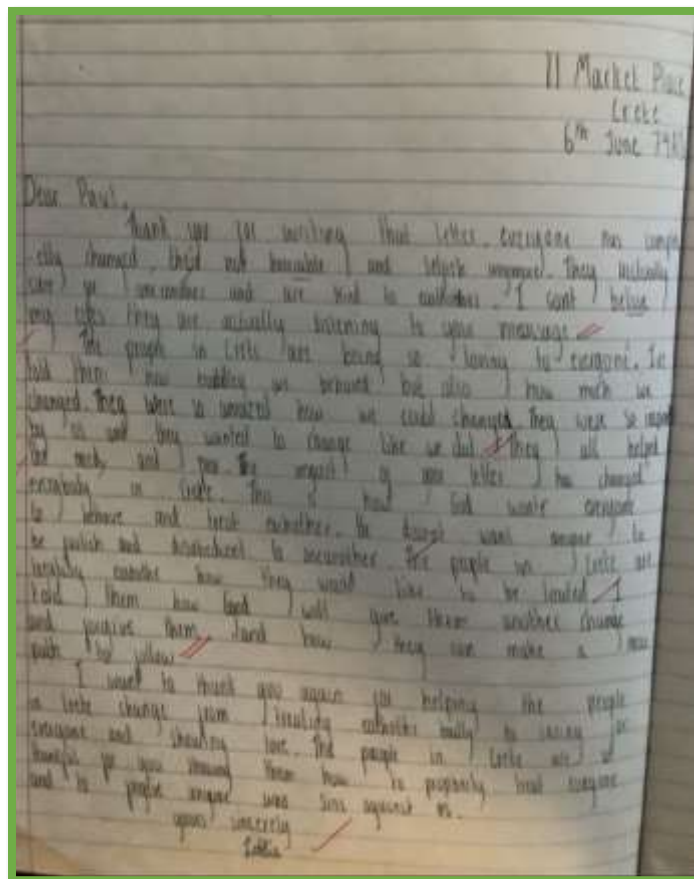 11 Market Place
Crete
6th June
Dear Paul,
Thank you for writing that letter. everyone has compl
-etly changed. they'd not and selfish anymore. They actually
care for oneanother and are kind to eachother. I cant belive
my eyes they are actually listening to your message.
The people in Crete are being so loving to everyone. I've
told them how baddley we behaved but also how much we
changed. They were so amazed how we could changed. They were so
by us and they wanted to change like we did. They all helped
the needy and poor. The impact of your letter has changed
everybody in Crete. This is how God wants everyone
to behave and treat eachother. He doesnt want anyone to
be and disobedient to oneanother. The people in Crete are
treating eachother how they would like to be treated. I
told them how God will give them another change
and forgive them and how they can make a new
path to follow.
I want to thank you again for helping the people
in Crete change from treating eachother badly to caring for
everyone and showing love. The people in Crete are so
thankful for you showing them how to properly treat everyone
and to forgive anyone who sins against us.
yours sincerely